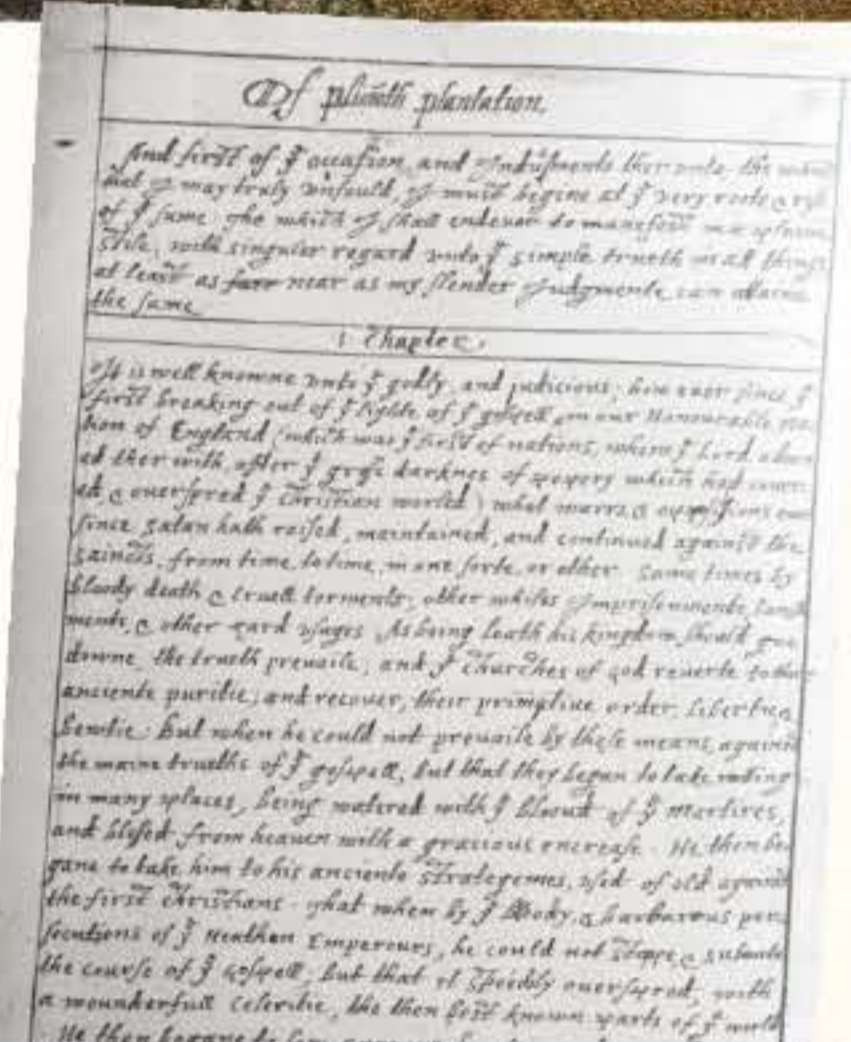 Of plim̃oth plantation.
And first of yᵉ occasion, and Indūsments ther unto; the which
that I may truly unfould, I must begine at yᵉ very roote & rise
of yᵉ same. The which I shall endevor to manefest in a plaine
stile; with singuler regard unto yᵉ simple trueth in all things,
at least as farr near as my slender Judgmente can attaine
the same.
1 Chapter.
It is well knowne unto yᵉ godly, and judicious; how ever since yᵉ
first breaking out of yᵉ lighte of yᵉ gospell, in our Honourable na-
tion of England (which was yᵉ first of nations, whom yᵉ Lord adorn-
ed ther with, after yᵉ grosse darknes of popery which had cover-
ed, & overspred yᵉ Christian world) what warrs, & oppossions ever
since Satan hath raised, maintained, and continued against the
saincts, from time, to time, in one sorte, or other. Some times by
bloody death & cruell torments; other whiles Imprisonments, banish-
ments, & other hard usages. As being loath his kingdom should goe
downe, the trueth prevaile; and yᵉ Churches of God reverte to their
anciente puritie; and recover, their primative order, libertie, &
bewtie. But when he could not prevaile by these means, against
the maine trueths of yᵉ gospell, but that they began to take rooting
in many places, being watered with yᵉ bloud of yᵉ martires,
and blessed from heaven with a gracious encrease. He then be-
gane to take him to his anciente strategemes, used of old against
the first Christians. That when by yᵉ bloody, & barbarous per-
secutions of yᵉ Heathen Emperours, he could not stoppe, & subuerte
the course of yᵉ gospell; but that it speedily overspred, with
a wounderfull celeritie, the then best known parts of yᵉ world.
He then begane to sow